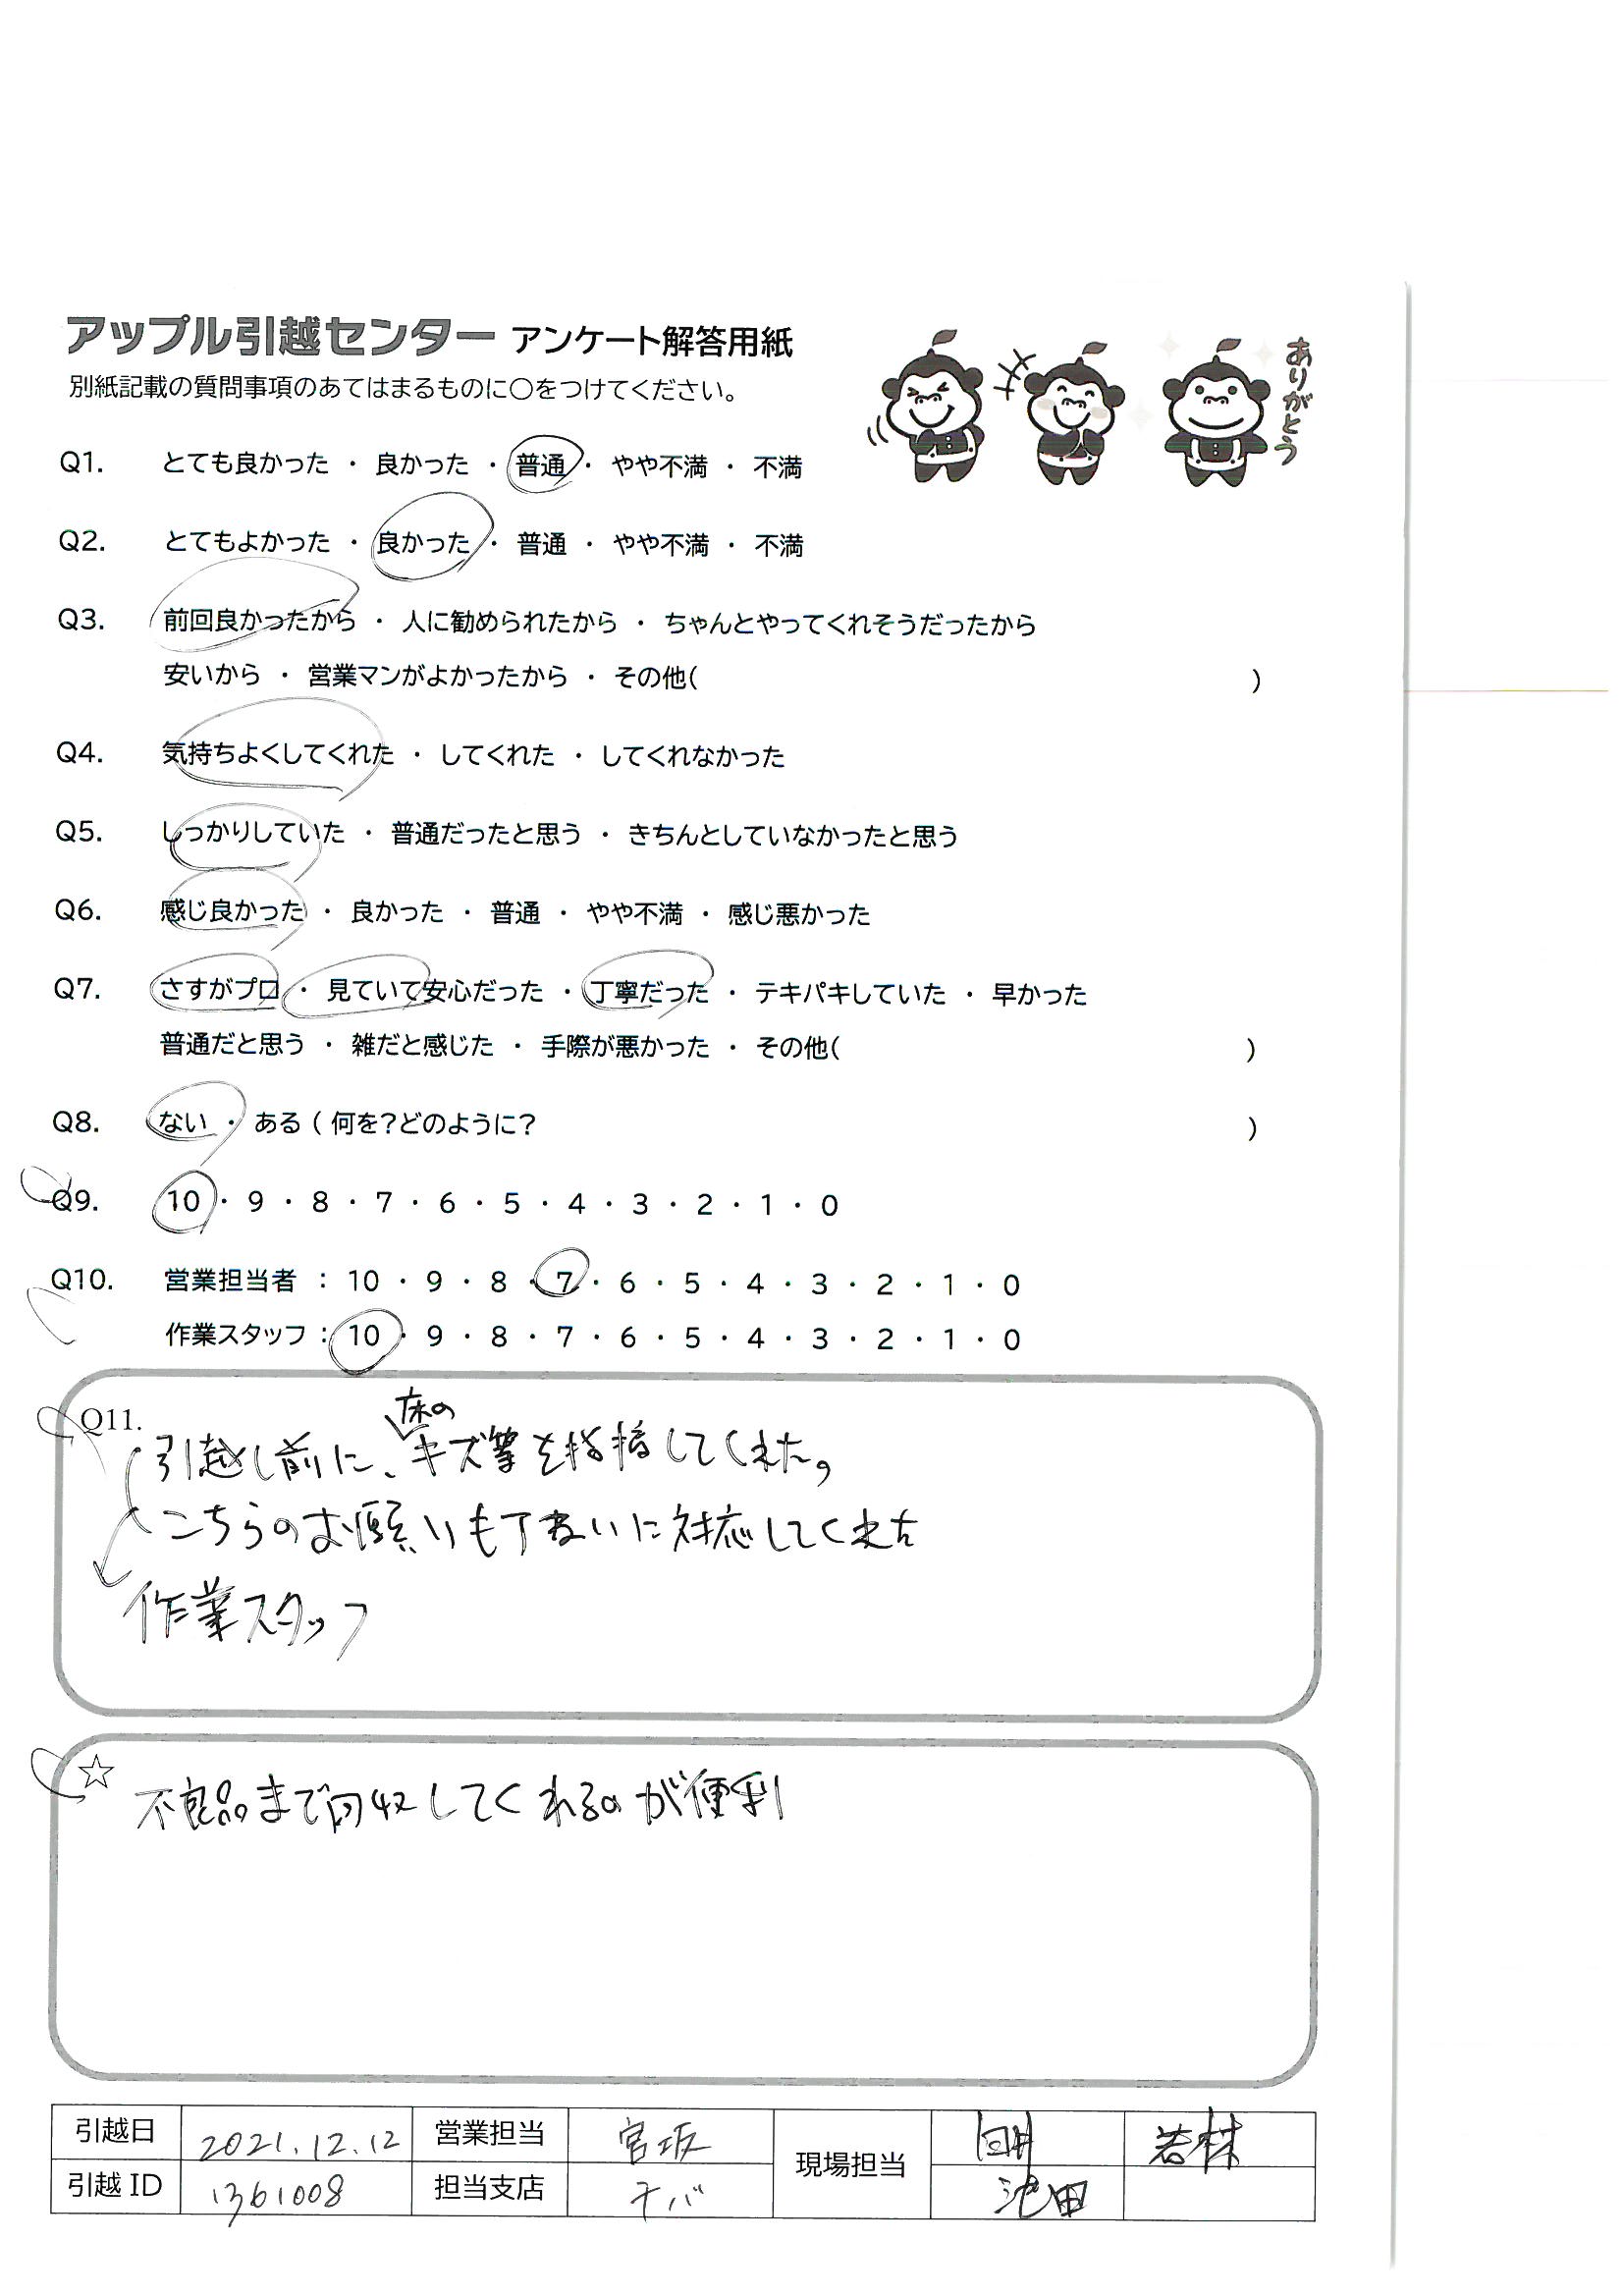 アップル引越センター アンケート解答用紙
別紙記載の質問事項のあてはまるものに○をつけてください。
ありがとう
Q1. とても良かった ・ 良かった ・ 普通 ・ やや不満 ・ 不満
Q2. とてもよかった ・ 良かった ・ 普通 ・ やや不満 ・ 不満
Q3. 前回良かったから ・ 人に勧められたから ・ ちゃんとやってくれそうだったから
安いから ・ 営業マンがよかったから ・ その他( )
Q4. 気持ちよくしてくれた ・ してくれた ・ してくれなかった
Q5. しっかりしていた ・ 普通だったと思う ・ きちんとしていなかったと思う
Q6. 感じ良かった ・ 良かった ・ 普通 ・ やや不満 ・ 感じ悪かった
Q7. さすがプロ ・ 見ていて安心だった ・ 丁寧だった ・ テキパキしていた ・ 早かった
普通だと思う ・ 雑だと感じた ・ 手際が悪かった ・ その他( )
Q8. ない ・ ある ( 何を?どのように? )
Q9. 10 ・ 9 ・ 8 ・ 7 ・ 6 ・ 5 ・ 4 ・ 3 ・ 2 ・ 1 ・ 0
Q10. 営業担当者 : 10 ・ 9 ・ 8 ・ 7 ・ 6 ・ 5 ・ 4 ・ 3 ・ 2 ・ 1 ・ 0
作業スタッフ : 10 ・ 9 ・ 8 ・ 7 ・ 6 ・ 5 ・ 4 ・ 3 ・ 2 ・ 1 ・ 0
Q11.
引越し前に、床のキズ等を指摘してくれた。
こちらのお願いも丁ねいに対応してくれた
作業スタッフ
☆
不良品まで回収してくれるのが便利
引越日 2021.12.12 営業担当 宮坂 現場担当 若林
引越 ID 1361008 担当支店 チバ 池田